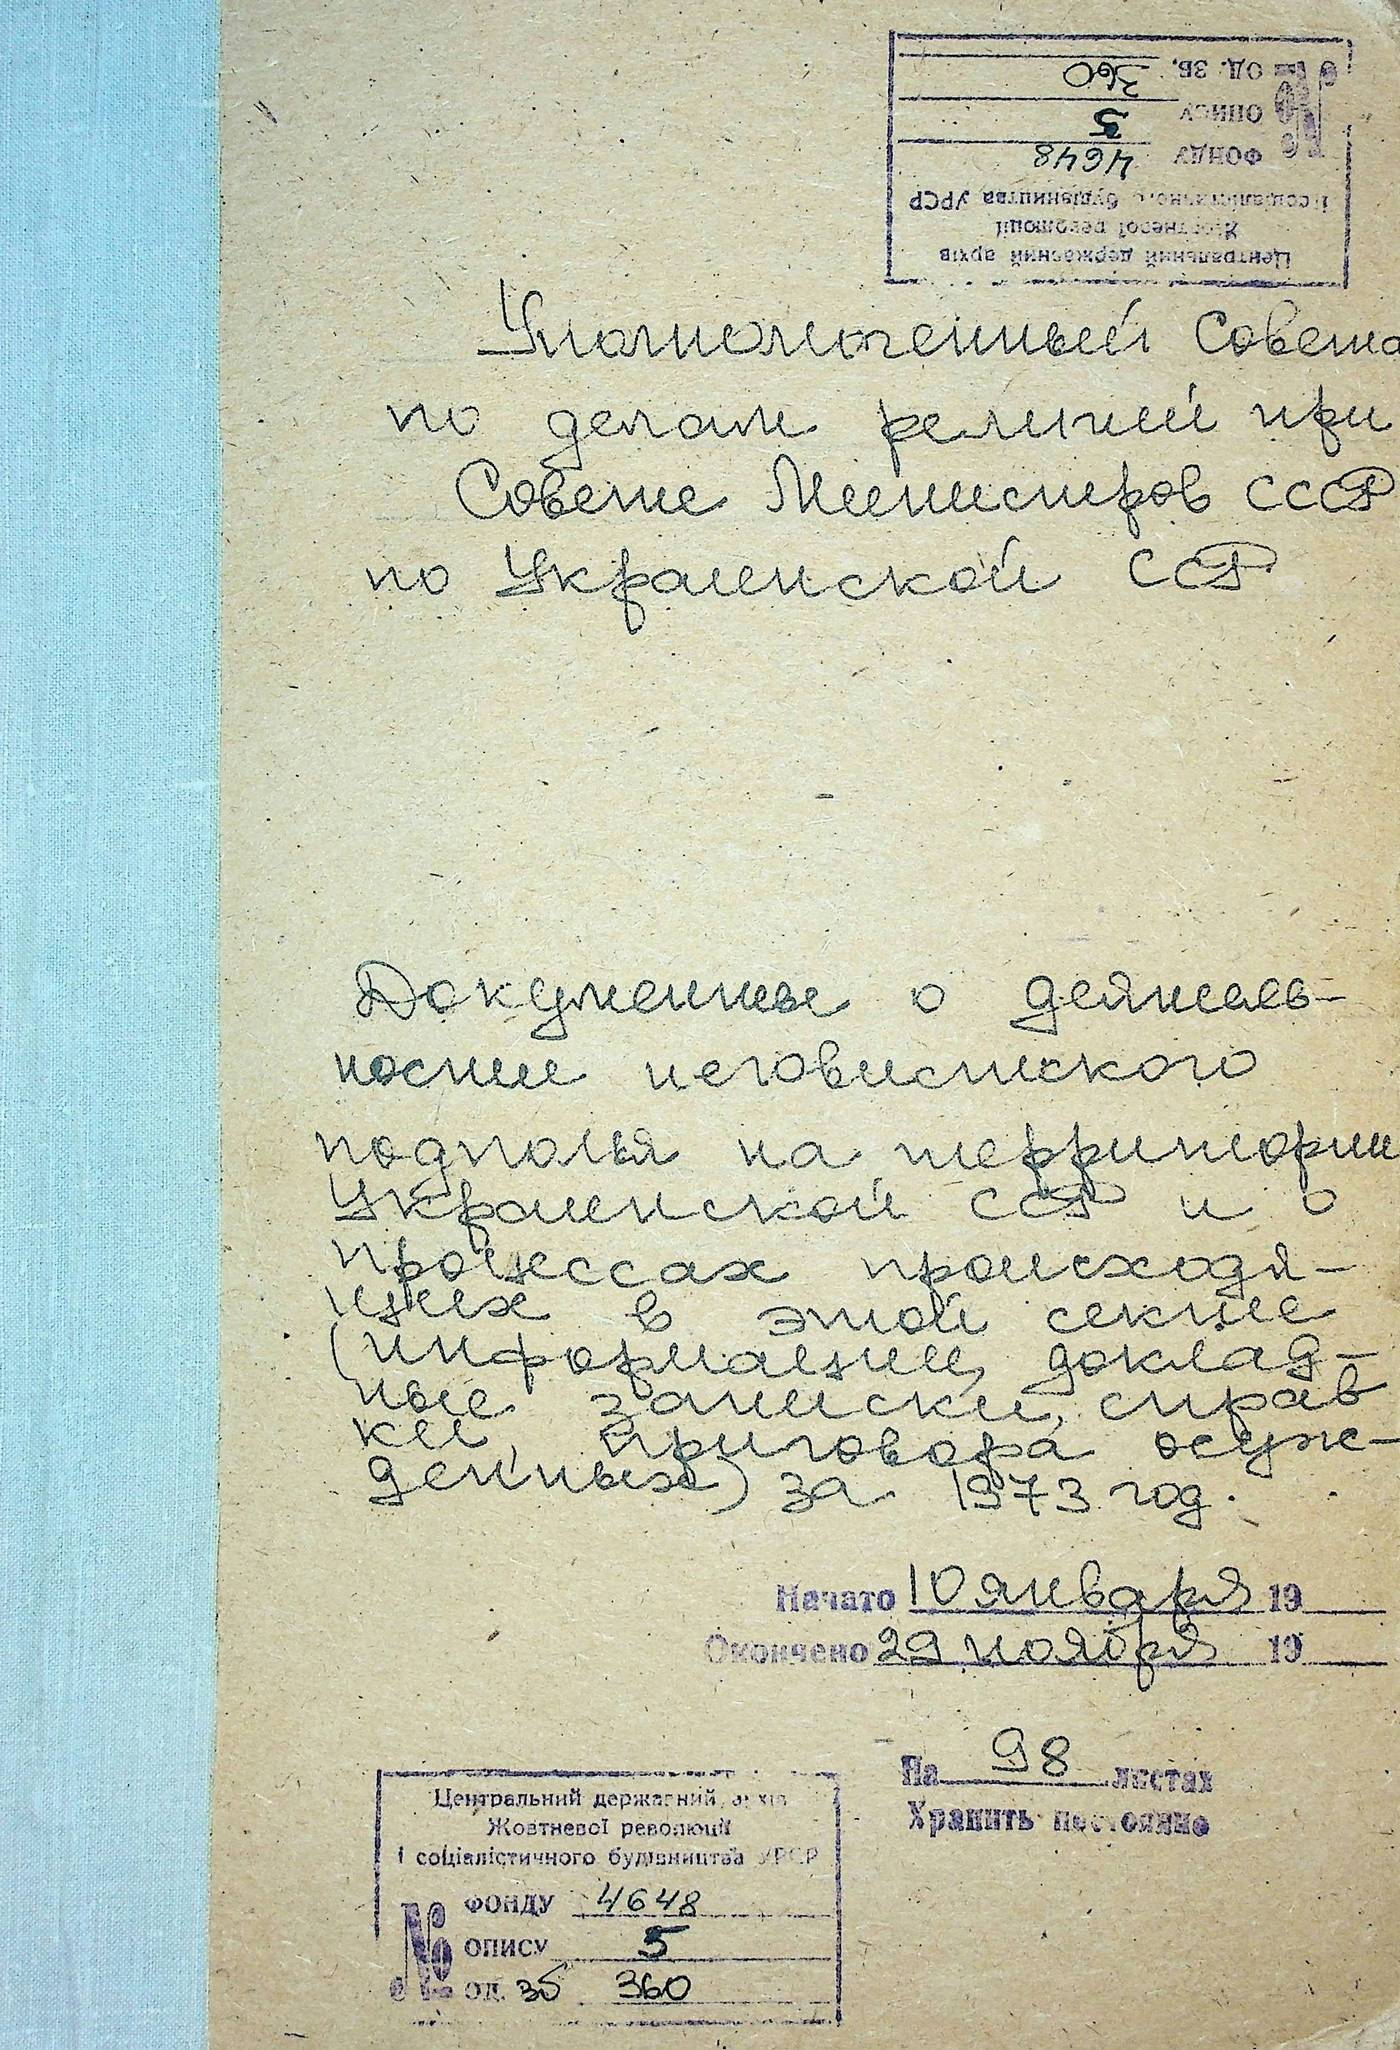 Центральний державний архів
Жовтневої революції
і соціалістичного будівництва УРСР
№ ФОНДУ 4648
ОПИСУ 5
ОД. ЗБ. 360
Уполномоченный Совета
по делам религий при
Совете Министров СССР
по Украинской ССР
Документы о деятель-
ности иеговистского
подполья на территории
Украинской ССР и о
процессах происходя-
щих в этой секте
(информации, доклад-
ные записки, справ
ки, приговора осуж-
денных) за 1973 год.
Начато 10 января 19
Окончено 29 ноября 19
На 98 листах
Хранить постоянно
Центральний державний архів
Жовтневої революції
і соціалістичного будівництва УРСР
№ ФОНДУ 4648
ОПИСУ 5
ОД. зб 360